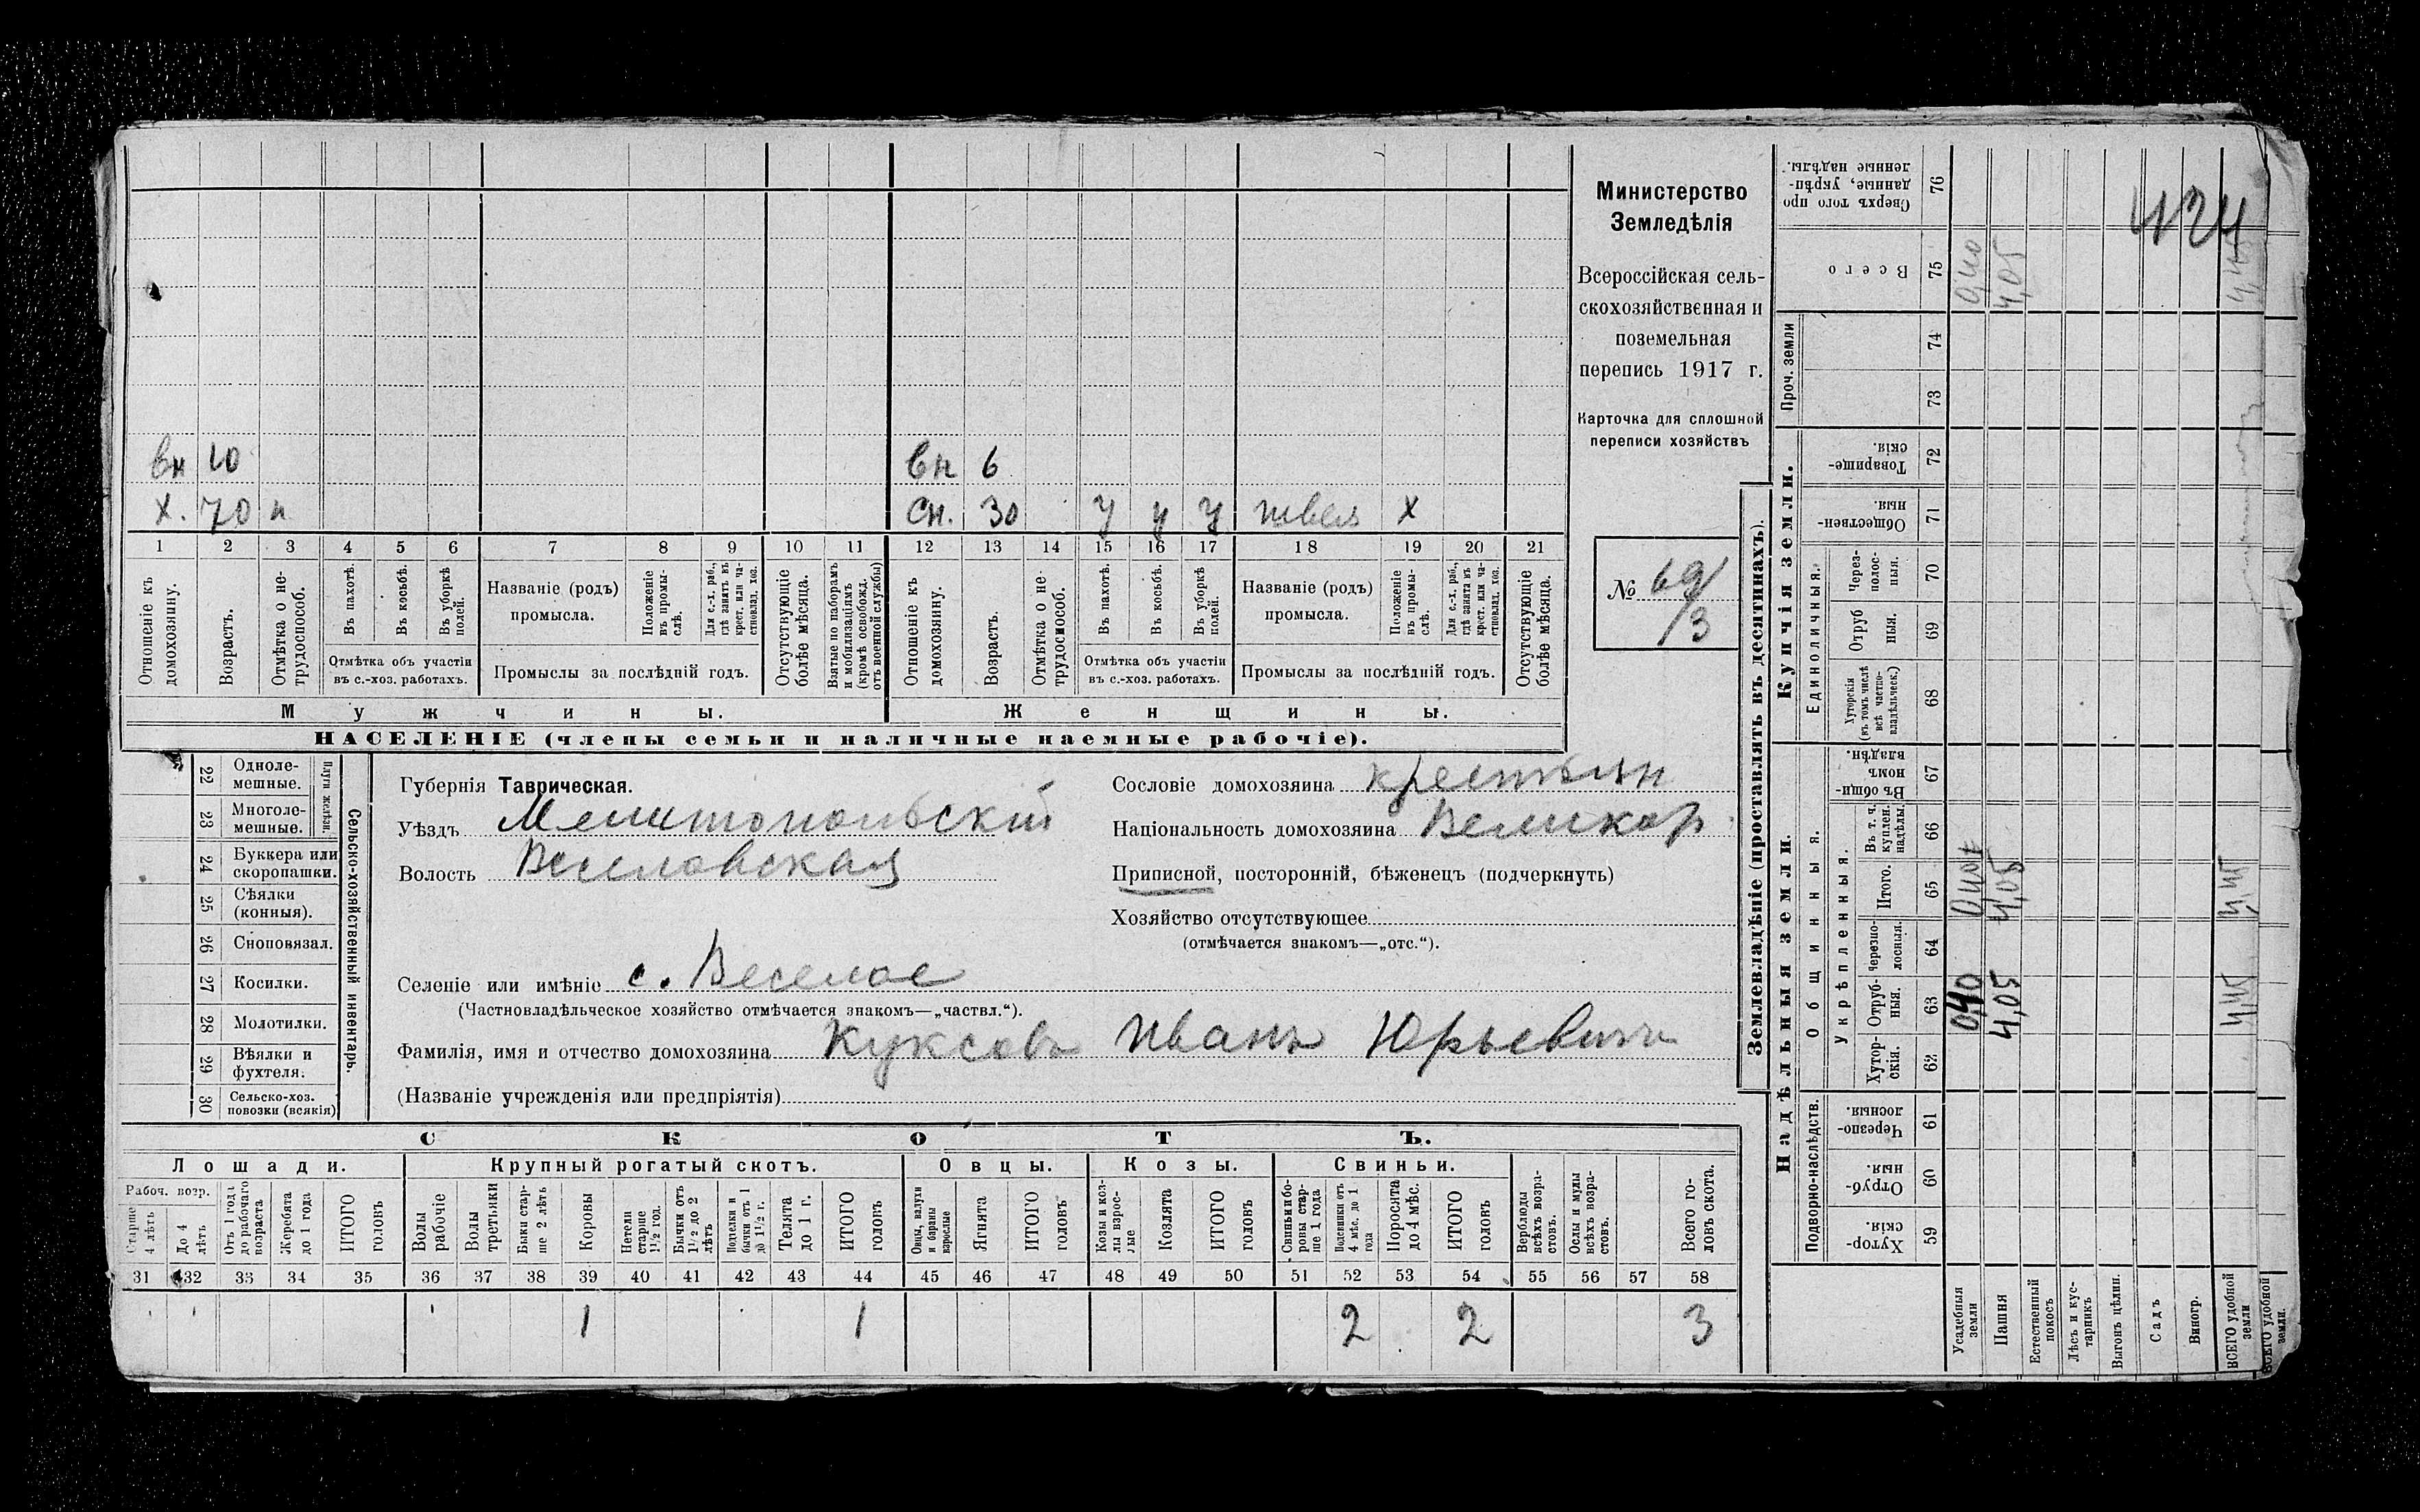 вн 10 вн 6
Х. 70 н сн. 30 у у у швея Х
1 2 3 4 5 6 7 8 9 10 11 12 13 14 15 16 17 18 19 20 21
Отношеніе къ домохозяину.
Возрастъ.
Отмѣтка о не-
трудоспособ.
Въ пахотѣ.
Въ косьбѣ.
Въ уборкѣ
полей.
Отмѣтка объ участіи
въ с.-хоз. работахъ.
Названіе (родъ)
промысла.
Положеніе
въ промы-
слѣ.
Для с.-х. раб.,
гдѣ занятъ въ
крест. или ча-
стновлад. хоз.
Промыслы за послѣдній годъ.
Отсутствующіе
болѣе мѣсяца.
Взятые по наборамъ
и мобилизаціямъ
(кромѣ освобожд.
отъ военной службы)
Отношеніе къ
домохозяину.
Возрастъ.
Отмѣтка о не-
трудоспособ.
Въ пахотѣ.
Въ косьбѣ.
Въ уборкѣ
полей.
Отмѣтка объ участіи
въ с.-хоз. работахъ.
Названіе (родъ)
промысла.
Положеніе
въ промы-
слѣ.
Для с.-х. раб.,
гдѣ занята въ
крест. или ча-
стновлад. хоз.
Промыслы за послѣдній годъ.
Отсутствующіе
болѣе мѣсяца.
Мужчины. Женщины.
НАСЕЛЕНІЕ (члены семьи и наличные наемные рабочіе).
Министерство
Земледѣлія
Всероссійская сель-
скохозяйственная и
поземельная
перепись 1917 г.
Карточка для сплошной
переписи хозяйствъ
№ 69/
/3
22 Одноле-
мешные.
23 Многоле-
мешные.
Плуги желѣзн.
24 Буккера или
скоропашки.
25 Сѣялки
(конныя).
26 Сноповязал.
27 Косилки.
28 Молотилки.
29 Вѣялки и
фухтеля.
30 Сельско-хоз.
повозки (всякія)
Сельско-хозяйственный инвентарь.
Губернія Таврическая.
Уѣздъ Мелитопольскій
Волость Веселовская
Селеніе или имѣніе с. Веселое
(Частновладѣльческое хозяйство отмѣчается знакомъ—„частвл.“).
Фамилія, имя и отчество домохозяина Куксовъ Иванъ Юрьевичъ
(Названіе учрежденія или предпріятія)
Сословіе домохозяина крестьян
Національность домохозяина Великор.
Приписной, посторонній, бѣженецъ (подчеркнуть)
Хозяйство отсутствующее
(отмѣчается знакомъ—„отс.“).
СКОТЪ.
Лошади. Крупный рогатый скотъ. Овцы. Козы. Свиньи.
Рабоч. возр.
Старше
4 лѣтъ
До 4
лѣтъ
Отъ 1 года
до рабочаго
возраста
Жеребята
до 1 года
ИТОГО
головъ
Волы
рабочіе
Волы
третьяки
Быки стар-
ше 2 лѣтъ
Коровы
Нетели
старше
1½ год.
Бычки отъ
1½ до 2
лѣтъ
Подтелки и
бычки отъ 1
до 1½ г.
Телята
до 1 г.
ИТОГО
головъ
Овцы, валухи
и бараны
взрослые
Ягнята
ИТОГО
головъ
Козы и коз-
лы взрос-
лые
Козлята
ИТОГО
головъ
Свиньи и бо-
ровы стар-
ше 1 года
Подсвинки отъ
4 мѣс. до 1
года
Поросята
до 4 мѣс.
ИТОГО
головъ
Верблюды
всѣхъ возра-
стовъ.
Ослы и мулы
всѣхъ возра-
стовъ.
Всего го-
ловъ скота.
31 32 33 34 35 36 37 38 39 40 41 42 43 44 45 46 47 48 49 50 51 52 53 54 55 56 57 58
1 1 2 2 3
Землевладѣніе (проставлять въ десятинахъ).
Надѣльныя земли. Купчія земли. Проч. земли
Подворно-наслѣдств.
Общинныя.
Укрѣпленныя.
Единоличныя.
Сверхъ того про
данные, укрѣп-
ленные надѣлы. 76
Всего 75 0,40 4,05 4,45
424
74
73
Товарище-
скія. 72
Обществен-
ныя. 71
Через-
полос-
ныя. 70
Отруб
ныя. 69
Хуторскія
(въ томъ числѣ
всѣ частно-
владѣльческ.) 68
Въ общи-
номъ
владѣн. 67
Въ т. ч.
куплен.
надѣлы 66
Итого. 65 4,05 4,45
Черезпо-
лосныя. 64
Отруб-
ныя. 63 0,40 4,05 4,45
Хутор-
скія. 62
Черезпо-
лосныя. 61
Отруб-
ныя. 60
Хутор-
скія. 59
Усадебныя
земли
Пашня
Естественный
покосъ
Лѣсъ и кус-
тарникъ
Выгонъ цѣлин.
Садъ
Виногр.
ВСЕГО удобной
земли
ВСЕГО удобной
земли.